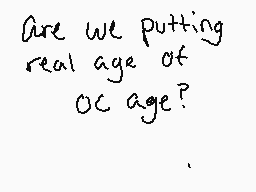 are we putting
real age of
oc age?